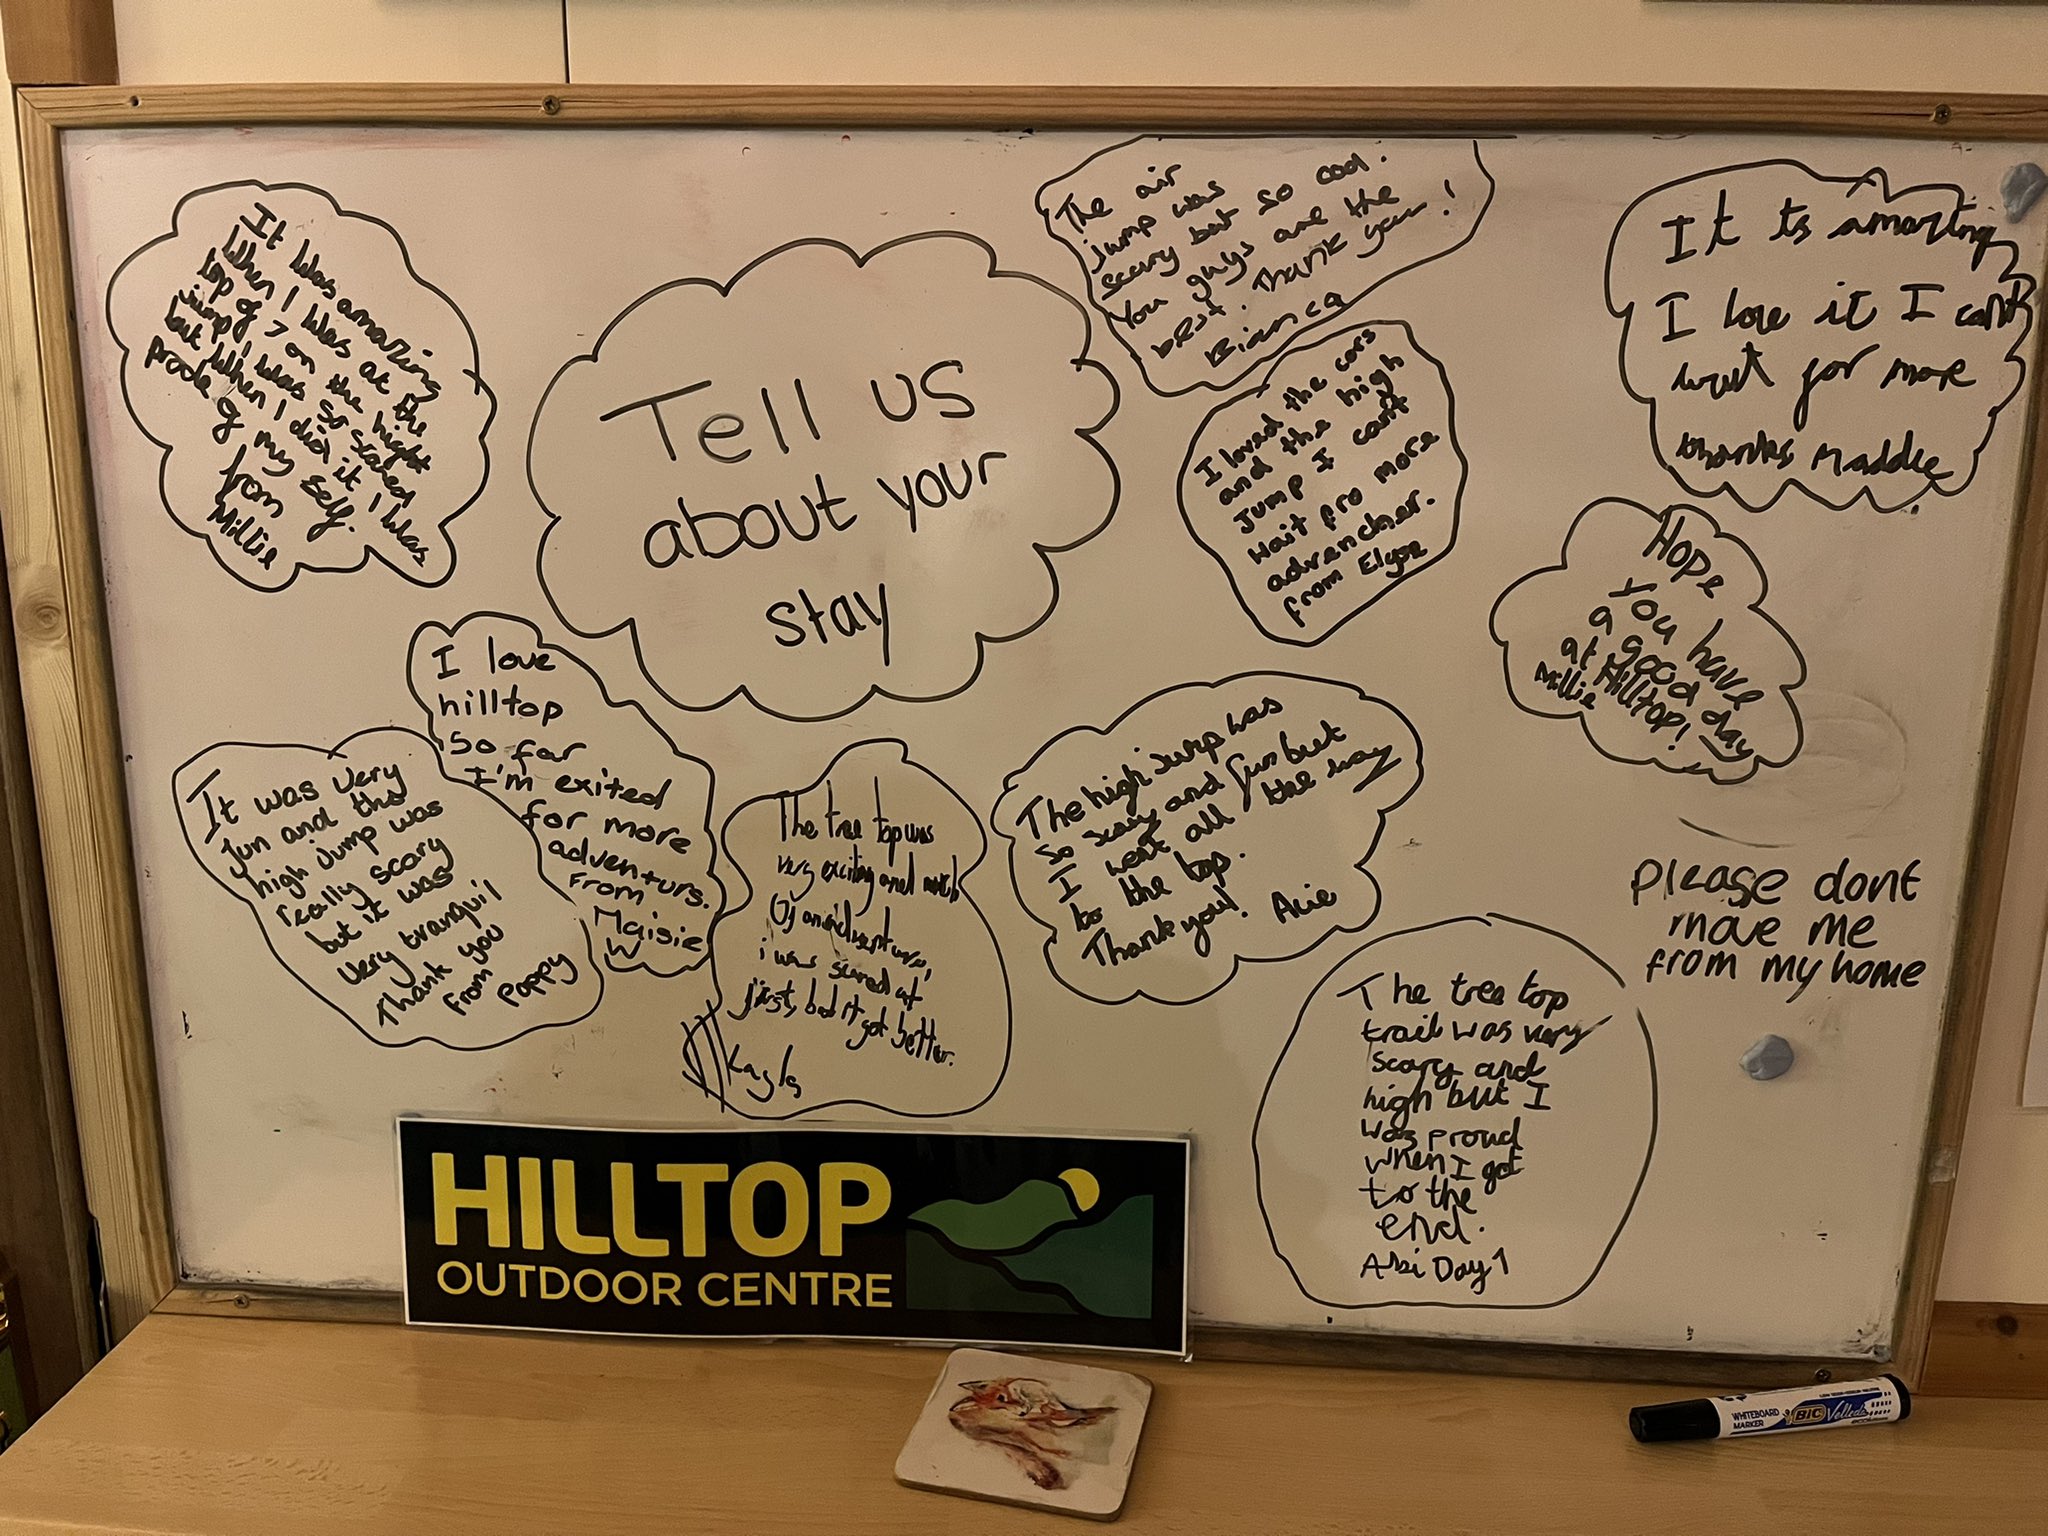 It was amazing
When I was at the
top of > on the hight
jump, I was so scared
but when I did it I was
prode of my self.
from
Millie
Tell us
about your
stay
The air
jump was
scary but so cool.
You guys are the
best. Thank you!
Bianca
I loved the cars
and the high
Jump I cant
wait fro more
advencher.
from Elyse
It ts amazing
I love it I cant
wait for more
thanks Maddie
Hope
you have
a good day
at Hilltop!
Millie
I love
hilltop
So far
I'm exited
for more
adventurs.
From
Maisie
W
It was very
fun and the
high Jump was
really scary
but it was
very tranquil
Thank you
from
Poppy
The tree top was
very exciting and much
Of an adventure,
i was scared at
first, but it got better.
Kayla
The high Jump was
so scary and fun but
I went all the way
to the top.
Thank you!
please dont
move me
from my home
The tree top
trail was very
scary and
high but I
was proud
when I got
to the
end.
Abi Day 1
HILLTOP
OUTDOOR CENTRE
WHITEBOARD
MARKER
BIC Velleda